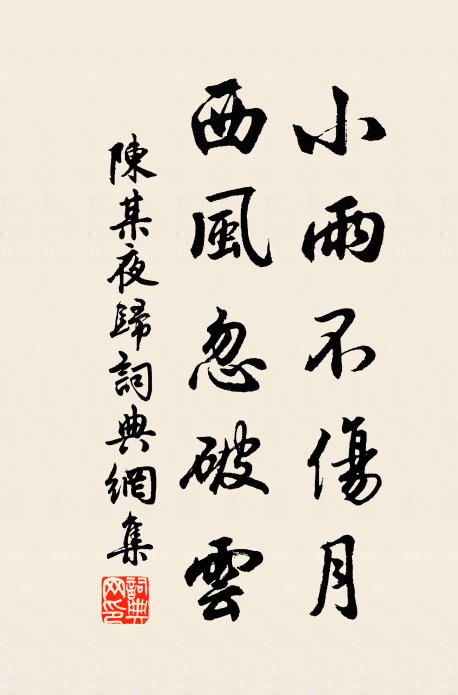 小雨不傷月
西風忽破雲
陳某夜歸詞典網集
詞典網印